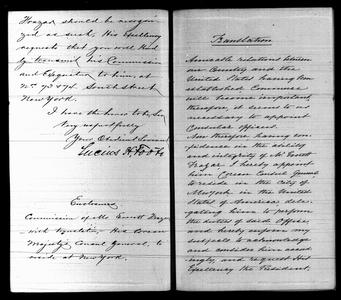 Frazar should be recognized
as such. His Excellency
requests that you will kindly
transmit his Commission
and Exequatur to him, at
No. 73 & 74 South Street
New York.
I have the honor to be, Sir
Very respectfully
Your Obedient Servant
Lucius H. Foote
Enclosure
Commission of Mr Everett Frazar
with translation, His Corean
Majesty's Consul General, to
reside at New York.
Translation
Amicable relations between
our Country and the
United States having been
established Commerce
will become important,
therefore, it seems to us
necessary to appoint
Consular Officers.
Now therefore having con-
fidence in the ability
and integrity of Mr Everett
Frazar I hereby appoint
him Corean Consul General
to reside in the City of
New York in the United
States of America, dele-
gating him to perform
the duties of said Office,
and hereby enjoin my
subjects to acknowledge
and consider him accord-
ingly, and request His
Excellency the President